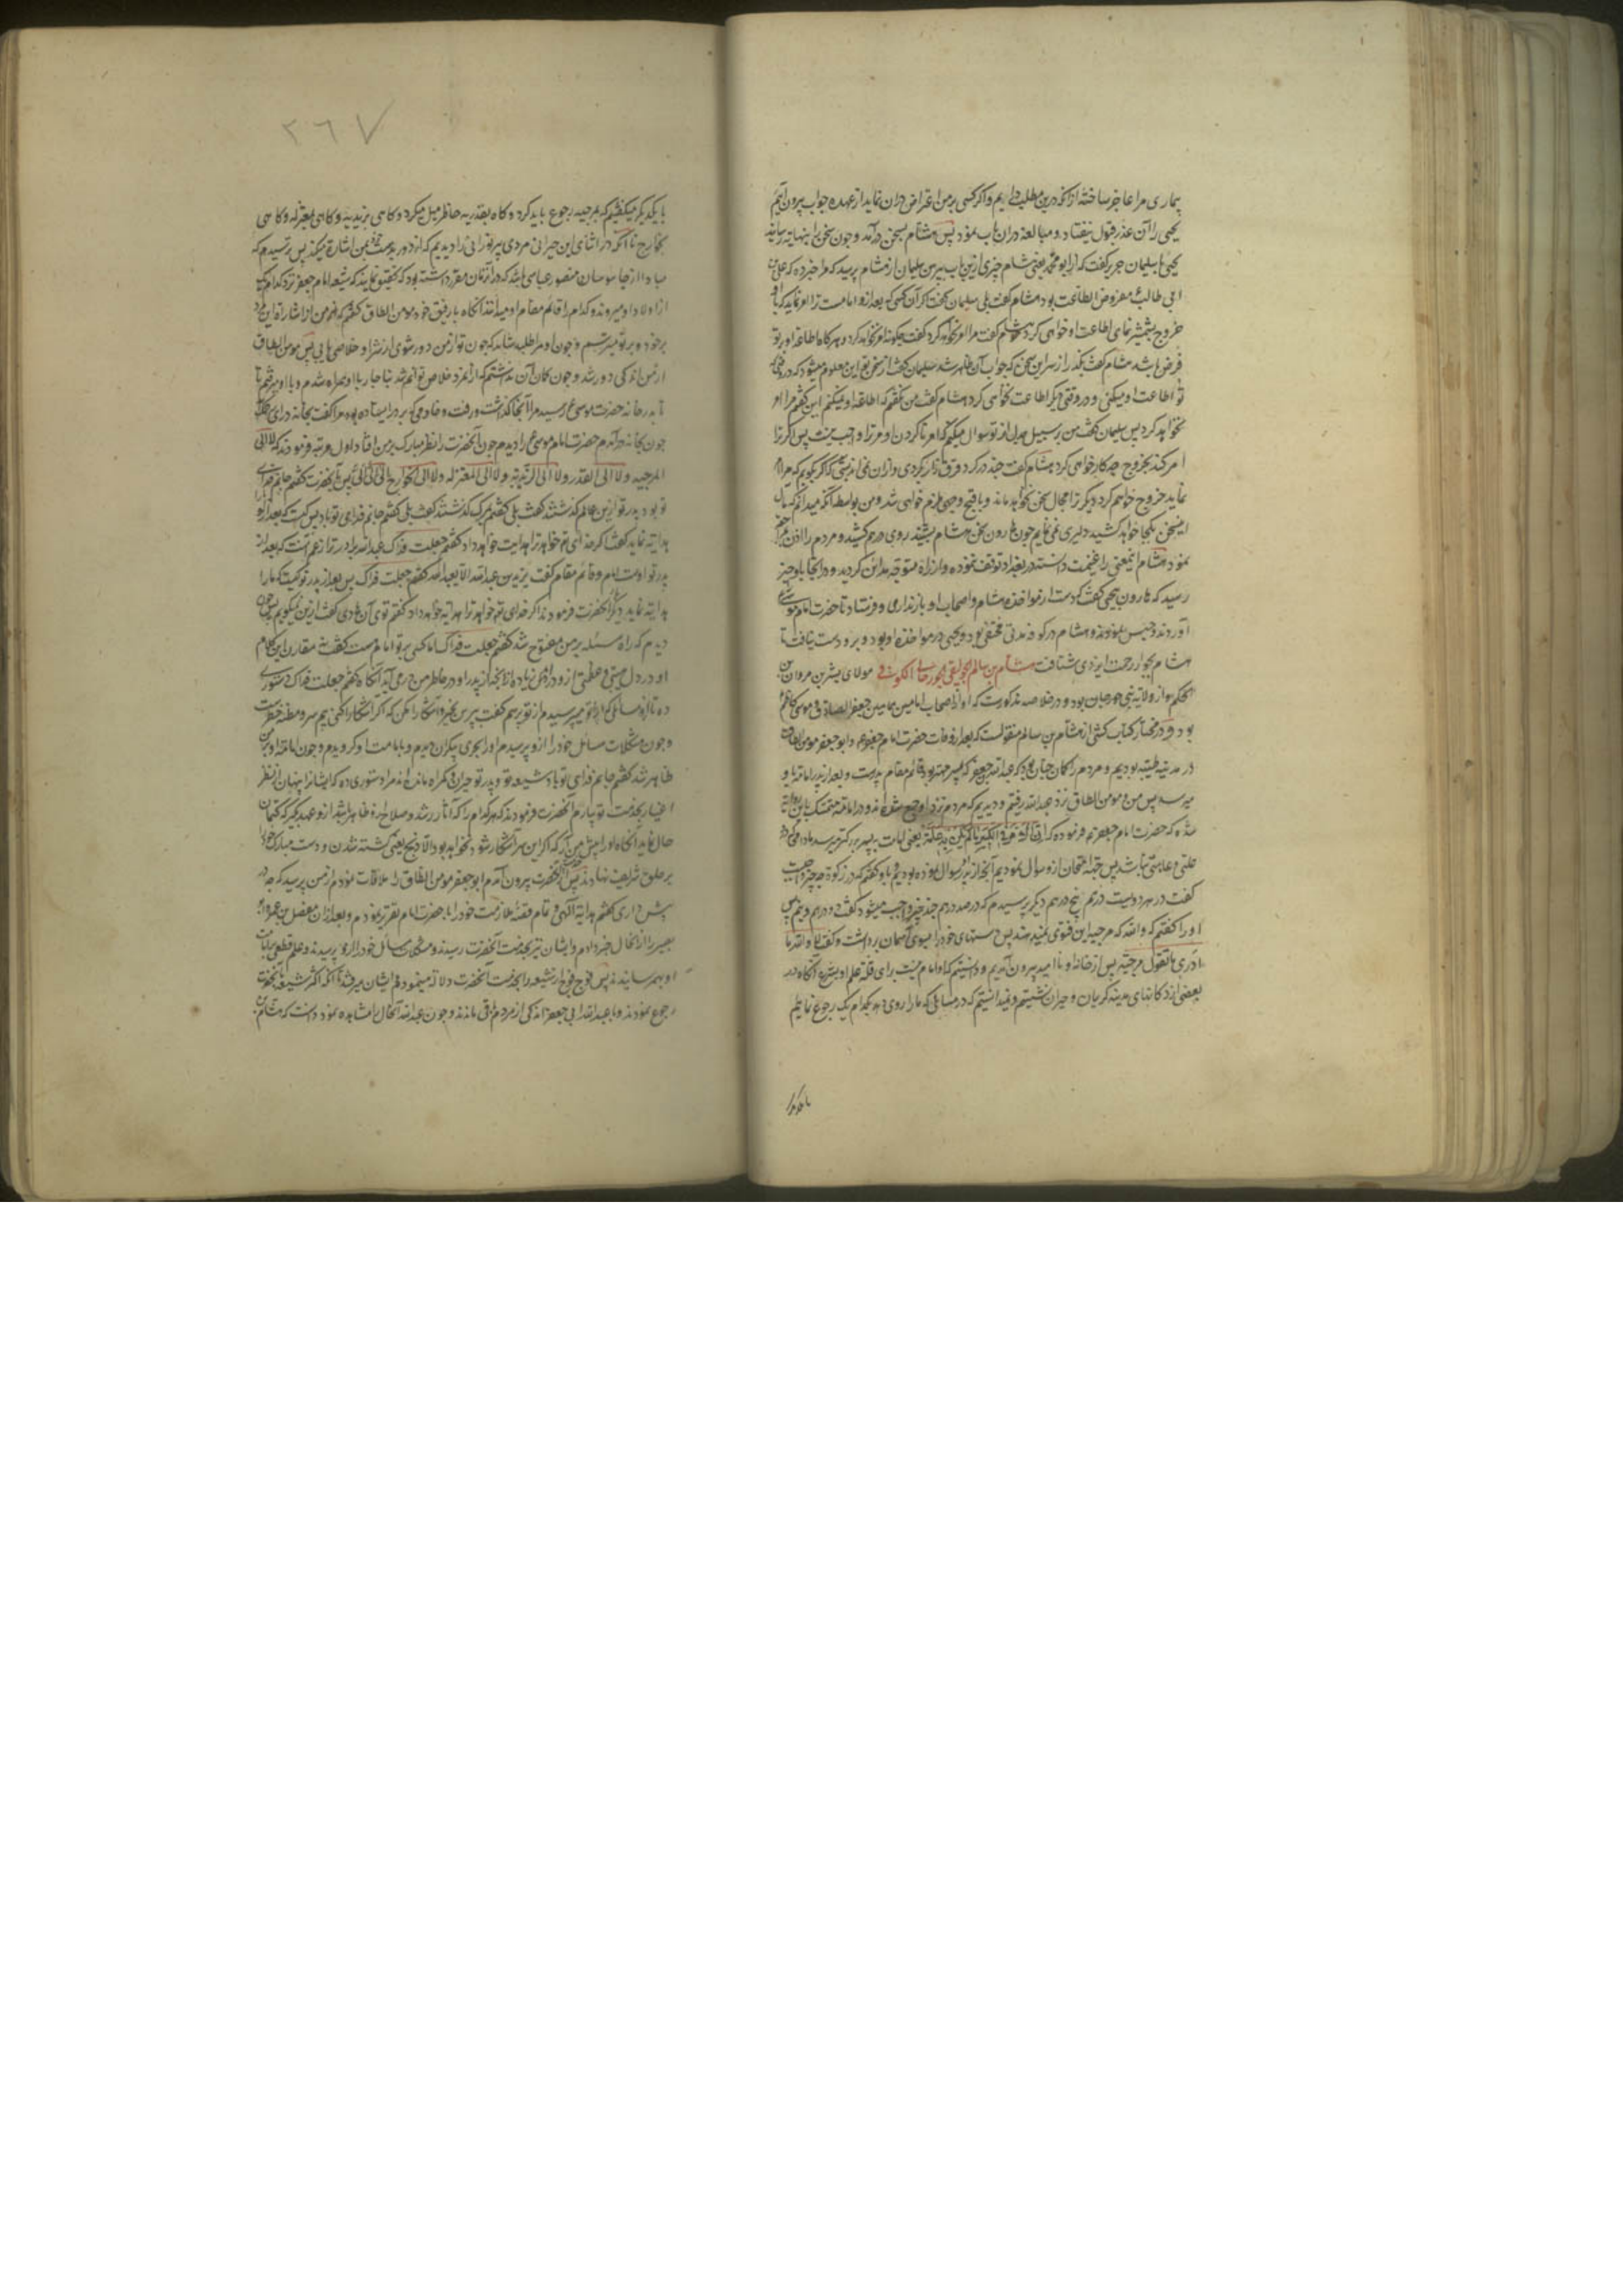 بیماری مرا عاجز ساخته از آنکه درین مطلب در آیم و اگر کسی بر من اعتراض دران نماید از عهده جواب بیرون آیم
یحیی را آن عذر قبول نیفتاد و مبالغه دران باب نمود پس هشام بسخن درآمد و چون سخن را بنهایت رسانید
یحیی با سلیمان جریر گفت که از ابو محمد یعنی هشام چیزی ازین باب بپرس سلیمان از هشام پرسید که مرا خبر ده که علی بن
ابی طالب مفروض الطاعت بود هشام گفت بلی سلیمان گفت اگر آن کسی که بعد ازو امامست ترا امر نماید که با او
خروج بشمشیر نمای اطاعت او خواهی کرد هشام گفت مرا امر نخواهد کرد گفت چگونه امر نخواهد کرد و هرگاه اطاعت او بر تو
فرض باشد هشام گفت بگذر از سر این سخن که جواب آن ظاهر شد سلیمان گفت از سخن تو این معلوم میشود که در وقتی
تو اطاعت او میکنی و در وقتی دیگر اطاعت نخواهی کرد هشام گفت من نگفتم که اطاعت او نمیکنم این گفتم مرا امر
نخواهد کرد پس سلیمان گفت من بر سبیل جدل از تو سوال میکنم که امر ناکردن او مر ترا واجب نیست پس اگر ترا
امر کند بخروج چه کار خواهی کرد هشام گفت چند در گرد قرق گردی و ازان نمی اندیشی که اگر بگویم که مرا امر
نماید خروج خواهم کرد دیگر ترا مجال سخن نخواهد ماند و باقبح وجهی ملزم خواهی شد و من بواسطه آنکه میدانم که مآل
این سخن بکجا خواهد کشید دلیری نمی نمایم چون هارون سخن هشام بشنید روی درهم کشید و مردم را اذن
نمود هشام این معنی را غنیمت دانسته در بغداد توقف ننموده و از راه متوجه مداین گردید و در آنجا باو خبر
رسید که هارون بیحیی گفت که دست از مواخذه هشام و اصحاب او باز نداری و فرستاد تا حضرت امام موسی را
آوردند و حبس نمودند و هشام در کوفه مدتی مختفی بود و یحیی در مواخذه او بود و برو دست نیافت تا
هشام بجوار رحمت ایزدی شتافت هشام بن سالم الجوالیقی الجوزجانی الکوفی مولای بشر بن مروان بن
الحکم بود از ولایت جوزجان بود و در خلاصه مذکورست که او از اصحاب امامین همامین جعفر الصادق و موسی کاظم
بود و در مختار کتاب کشی از هشام بن سالم منقولست که بعد از وفات حضرت امام جعفر ع من و ابو جعفر مومن الطاق
در مدینه طیبه بودیم و مردم را گمان چنان بود که عبدالله بن جعفر که پسر مهتر بود قایم مقام پدرست و بعد از پدر امامت باو
میرسد پس من و مومن الطاق نزد عبدالله رفتیم و دیدیم که مردم نزد او جمع شده اند و در امامت متمسک باین روایت
شده که حضرت امام جعفر ع فرموده که ان الامر فی الکبیر ما لم یکن به علة یعنی امامت به پسر بزرگتر میرسد مادامی که درو
علتی و عاهتی نباشد پس جهت امتحان ازو سوال نمودیم آنچه از پدر او سوال نموده بودیم و باو گفتیم که در زکوة چه چیز واجب
گفت در هر دویست درهم پنج درهم دیگر پرسیدم که در صد درهم چند چیز واجب میشود گفت دو درهم و نیم پس
او را گفتم که والله که مرجیه این فتوی نمیدهند پس دستهای خود را بسوی آسمان برداشت و گفت لا والله ما
ادری ما تقول مرجئة پس از خانه او ناامید بیرون آمدیم و دانستیم که او امام نیست برای قلة علم او بشرع آنگاه در
بعضی از دکانهای مدینه گریان و حیران نشستیم و نمیدانستیم که در مسایلی که ما را روی دهد بکدام یک رجوع نمایم
با یکدیگر
٢٦٧
با یکدیگر میگفتیم که بمرجیه رجوع باید کرد و گاه بقدریه خاطر میل میکرد و گاهی بزیدیه و گاهی بمعتزله و گاهی
بخوارج تا آنکه در اثنای این حیرانی مردی پیر نورانی را دیدیم که از دور بدست خود بمن اشارت میکند پس ترسیدم که
مبادا از جاسوسان منصور عباسی باشد که در آن زمان مقرر داشته بود که تحقیق نمایند که شیعه امام جعفر نزد کدام یک
از اولاد او میروند و کدام را قائم مقام او میدانند آنگاه با رفیق خود مومن الطاق گفتم که من از اشارت این مرد
بر خود و بر تو میترسم و چون او مرا طلبیده شاید که چون تو از من دور شوی از شر او خلاصی یابی پس مومن الطاق
از من اندکی دور شد و چون گمان آن نداشتم که از آن مرد خلاص توانم شد بناچار با او همراه شدم و با او میرفتم تا
تا بدر خانه حضرت موسی ع رسید مرا آنجا گذاشت و رفت و خادمی که بر در ایستاده بود مرا گفت بخانه درای
چون بخانه درآمدم حضرت امام موسی ع را دیدم چون آنحضرت را نظر مبارک بر من افتاد اول مرتبه فرمودند که لا الی
المرجیه و لا الی القدریه و لا الی الزیدیه و لا الی المعتزله و لا الی الخوارج الی الی الی پس بآنحضرت گفتم جانم فدای
تو بود پدر تو ازین عالم گذشتند گفت بلی گفتم بمرگ گذشتند گفت بلی گفتم جانم فدای تو باد پس کیست که بعد ازو ما را
هدایت نماید گفت اگر خدای تعالی خواهد ترا هدایت خواهد داد گفتم جعلت فداک عبدالله برادر ترا زعم آنست که بعد از
پدر تو اوست امام و قائم مقام گفت یرید عبدالله ان لا یعبد الله گفتم جعلت فداک پس بعد از پدر تو کیست که ما را
هدایت نماید دیگر آنحضرت فرمودند اگر خدای تعالی خواهد ترا هدایت خواهد داد گفتم توی آن هادی گفت ازین نمیگویم پس چون
دیدم که راه مسئله بر من مفتوح شد گفتم جعلت فداک آیا کسی بر تو امام هست گفت نه مقارن این کلام
او در دل هیبتی و عظمتی ازو در آمد زیاده از آنچه از پدر او در خاطر من در می آید آنگاه گفتم جعلت فداک دستوری
ده تا از مسائلی که از پدر تو میپرسیدم از تو بپرسم گفت بپرس تا خبردار شوی و آشکارا مکن که اگر آشکارا کنی بیم سر و مظنه خطرست
و چون مشکلات مسائل خود را ازو پرسیدم او را بحری بیکران دیدم و بامامت او گرویدم و چون امامت او بر من
ظاهر شد گفتم جانم فدای تو باد شیعه تو و پدر تو حیران و گمراه مانده اند مرا دستوری ده که ایشانرا پنهان از نظر
اغیار بخدمت تو بیارم آنحضرت فرمودند که هر کدام را که آثار رشد و صلاح ازو ظاهر باشد ازو عهد بگیر که کتمان
حال نماید آنگاه او را پیش من آر که اگر این سر آشکار شود نخواهد بود الا ذبح یعنی کشته شدن و دست مبارک خود را
بر حلق شریف نهادند پس از آنحضرت بیرون آمدم ابو جعفر مومن الطاق را ملاقات نمودم از من پرسید که چه در
پیش داری گفتم هدایت الهی و تمام قصه ملازمت خود را با حضرت امام تقریر نمودم و بعد ازان مفضل بن عمر و ابو
بصیر را از آن حال خبر دادم و ایشان نیز بخدمت آنحضرت رسیدند و مشکلات مسائل خود را ازو پرسیدند و علم قطعی بامامت
او بهم رسانیدند پس فوج فوج از شیعه را بخدمت آنحضرت دلالت مینمودم و ایشان میرفتند تا آنکه اکثر شیعه بآنحضرت
رجوع نمودند و با عبدالله ابی جعفر اندکی از مردم باقی ماندند و چون عبدالله آن حال را مشاهده نمود دانست که هشام بن